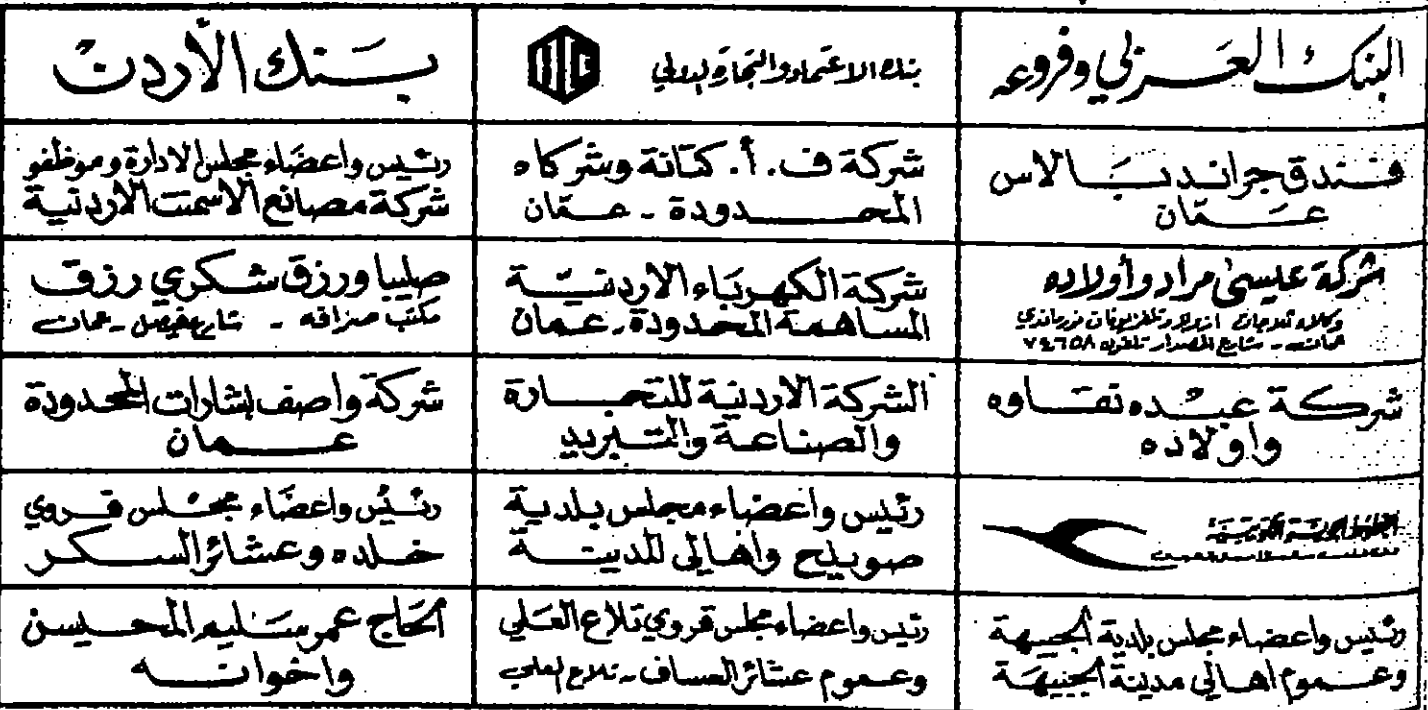 البنك العربي وفروعه
بنك الاعتماد والتجارة الدولي
بنك الأردن
فندق جراند بالاس
عمّان
شركة ف. أ. كتانة وشركاه
المحدودة - عمّان
رئيس واعضاء مجلس الادارة وموظفو
شركة مصانع الاسمنت الاردنية
شركة عيسى مراد وأولاده
وكلاء ثلاجات
عمان - شارع المصدار تلفون ٧٤٦٥٨
شركة الكهرباء الاردنية
المساهمة المحدودة - عمان
صليبا ورزق شكري رزق
مكتب صرافه - شارع فيصل - عمان
شركة عبده تفاوه
واولاده
الشركة الاردنية للتجارة
والصناعة والتبريد
شركة واصف بشارات المحدودة
عمان
الخطوط الجوية الكويتية
رئيس واعضاء مجلس بلدية
صويلح واهالي المدينة
رئيس واعضاء مجلس قروي
خلده وعشائر السكر
رئيس واعضاء مجلس بلدية الجبيهة
وعموم اهالي مدينة الجبيهة
رئيس واعضاء مجلس قروي تلاع العلي
وعموم عشائر العساف - تلاع العلي
الحاج عمر سليم المحيسن
واخوانه